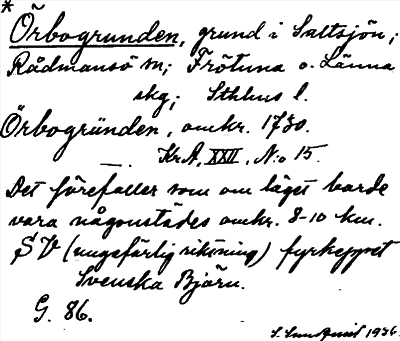 *
Örbogrunden, grund i Saltsjön;
Rådmansö sn; Frötuna o. Länna
skg; Sthlms l.
Örbogründen, omkr. 1730.
Kr.A, XXII, N:o 15.
Det förefaller som om läget borde
vara någonstädes omkr. 8-10 km.
SV (ungefärlig riktning) fyrskeppet
Svenska Björn.
G. 86.
1936.